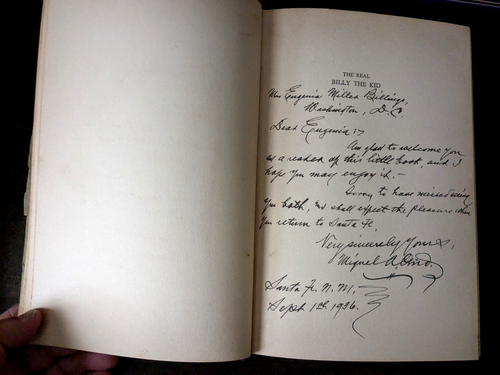 THE REAL
BILLY THE KID
Mrs Eugenia Miller Billings,
Washington, D.C.
Dear Eugenia:
Am glad to welcome you
as a reader of this little book, and I
hope you may enjoy it.—
Sorry to have missed seeing
you both, shall expect the pleasure when
you return to Santa Fe.
Very sincerely yours,
Miguel A. Otero
Santa Fe, N.M.,
Sept 1st, 1936.